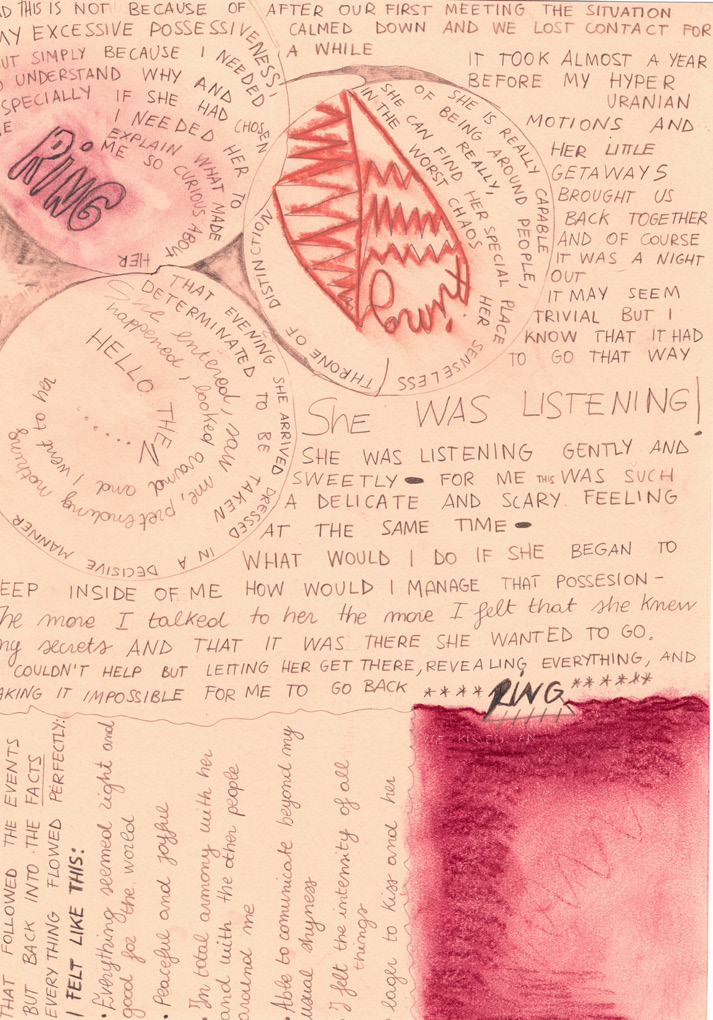 THIS IS NOT BECAUSE OF
MY EXCESSIVE POSSESSIVENESS,
BUT SIMPLY BECAUSE I NEEDED
UNDERSTAND WHY AND
ESPECIALLY IF SHE HAD CHOSEN
I NEEDED HER TO
EXPLAIN WHAT MADE
ME SO CURIOUS ABOUT
HER
RING
AFTER OUR FIRST MEETING THE SITUATION
CALMED DOWN AND WE LOST CONTACT FOR
A WHILE
IT TOOK ALMOST A YEAR
BEFORE MY HYPER
URANIAN
MOTIONS AND
HER LITTLE
GETAWAYS
BROUGHT US
BACK TOGETHER
AND OF COURSE
IT WAS A NIGHT
OUT
IT MAY SEEM
TRIVIAL BUT I
KNOW THAT IT HAD
TO GO THAT WAY
SHE IS REALLY CAPABLE
OF BEING AROUND PEOPLE,
REALLY,
SHE CAN FIND HER SPECIAL PLACE
IN THE WORST CHAOS
HER SENSELESS
THRONE OF DISTINCTION
Ring
THAT EVENING SHE ARRIVED DRESSED IN A DECISIVE MANNER
DETERMINATED TO BE TAKEN
She entered, saw me, pretending nothing
happened, looked around and I went to her
HELLO THEN
......
SHE WAS LISTENING!
SHE WAS LISTENING GENTLY AND
SWEETLY - FOR ME THIS WAS SUCH
A DELICATE AND SCARY FEELING
AT THE SAME TIME -
WHAT WOULD I DO IF SHE BEGAN TO
EEP INSIDE OF ME HOW WOULD I MANAGE THAT POSSESION -
The more I talked to her the more I felt that she knew
my secrets AND THAT IT WAS THERE SHE WANTED TO GO.
COULDN'T HELP BUT LETTING HER GET THERE, REVEALING EVERYTHING, AND
AKING IT IMPOSSIBLE FOR ME TO GO BACK **** RING ******
THAT FOLLOWED THE EVENTS
BUT BACK INTO THE FACTS
EVERYTHING FLOWED PERFECTLY:
I FELT LIKE THIS:
• Everything seemed right and
good for the world
• Peaceful and joyful
• In total armony with her
and with the other people
around me
• Able to comunicate beyond my
usual shyness
• I felt the intensity of all
things
eager to kiss and her